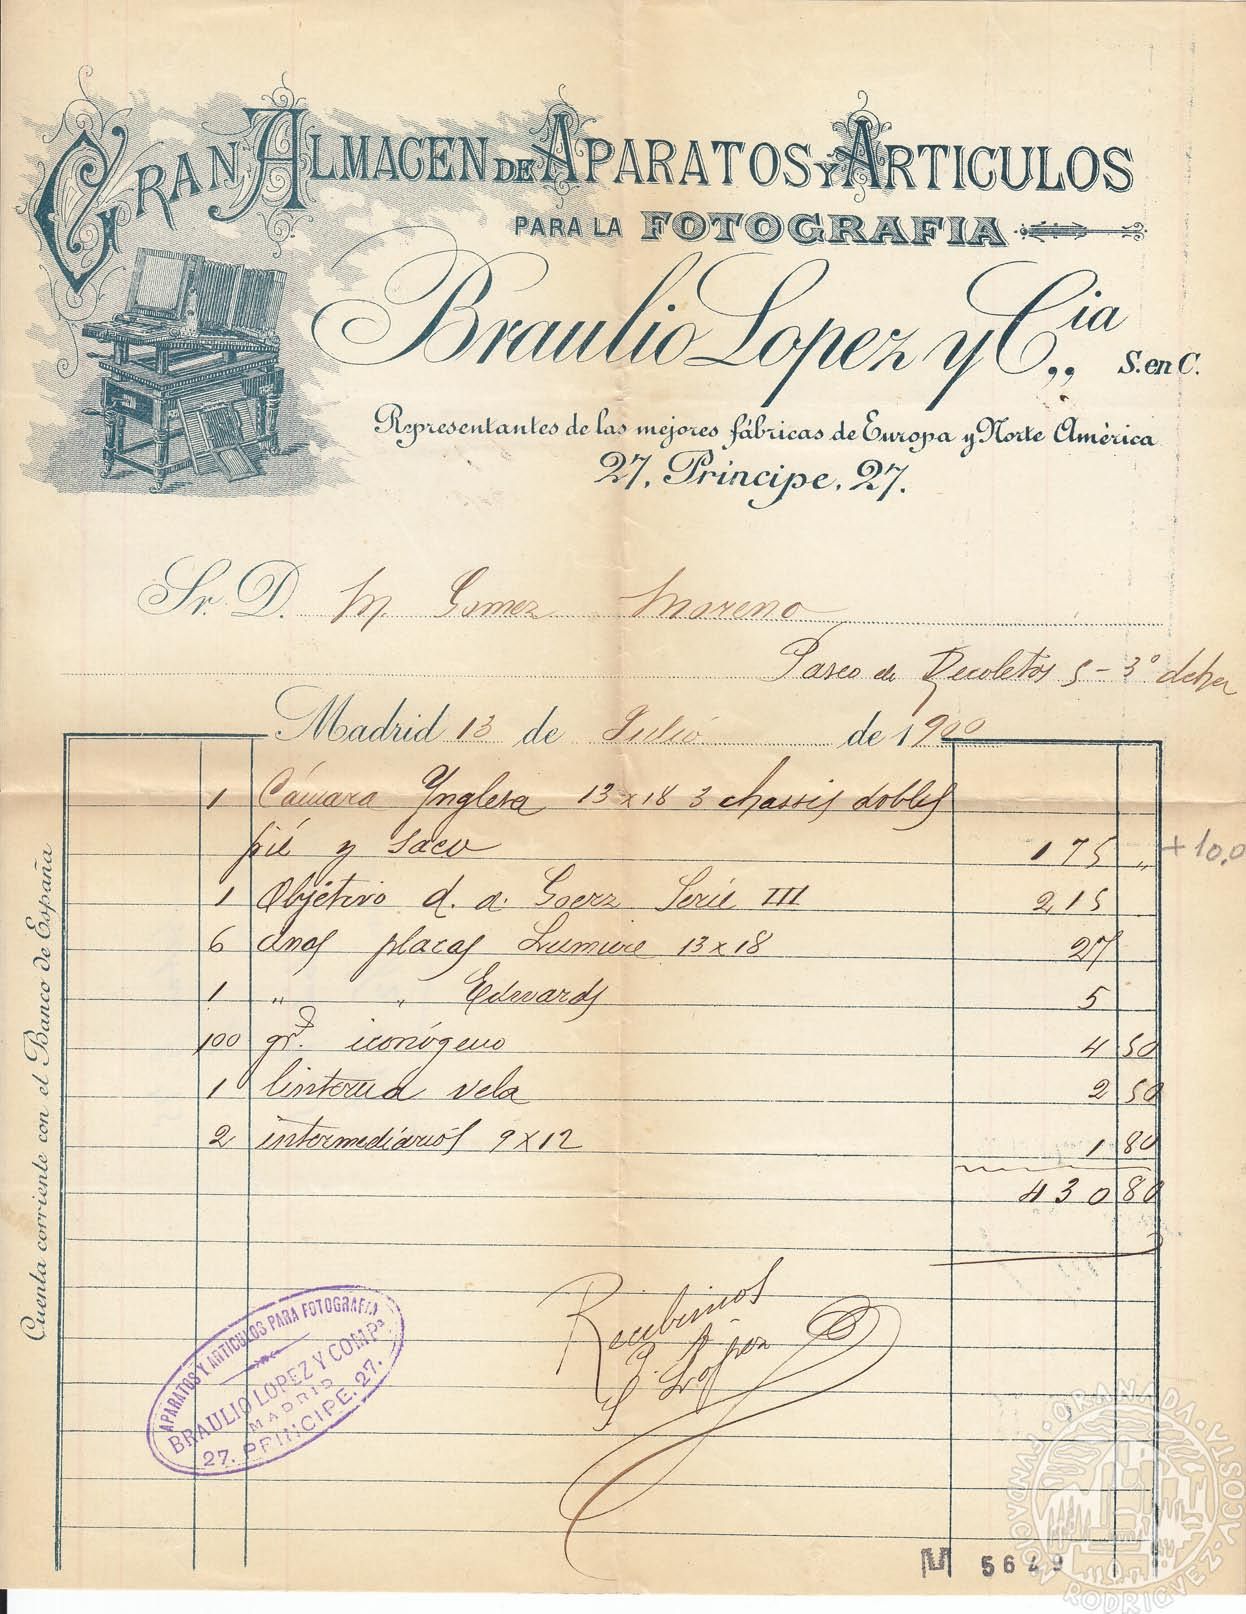 GRAN ALMACEN DE APARATOS Y ARTICULOS
PARA LA FOTOGRAFIA
Braulio Lopez y Cia,, S. en C.
Representantes de las mejores fábricas de Europa y Norte América
27, Príncipe, 27.
Sr. D. M. Gomez Moreno
Paseo de Recoletos 5-3º dcha
Madrid 13 de Julio de 1900
1 Cámara Ynglesa 13x18 3 chassis dobles
pié y saco 175 „ +10,0
1 Objetivo d. a. Goerz Serie III 215
6 dnas placas Lumiere 13x18 27
1 „ „ Edwards 5
100 grs. iconógeno 4 50
1 linterna vela 2 50
2 intermediarios 9x12 1 80
430 80
Recibimos
López
Cuenta corriente con el Banco de España
APARATOS Y ARTICULOS PARA FOTOGRAFIA
BRAULIO LOPEZ Y COMPª
MADRID
27. PRINCIPE. 27.
5649
FUNDACIÓN RODRÍGUEZ-ACOSTA · GRANADA ·